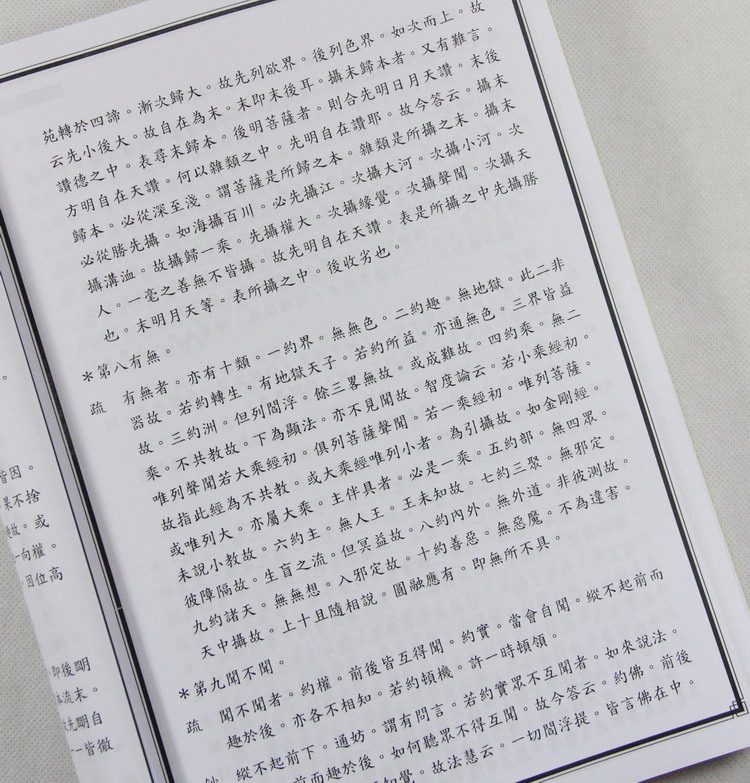 苑轉於四諦。漸次歸大。故先列欲界。後列色界。如次而上。故
云先小後大。故自在為末。末即末後耳。攝末歸本者。又有難言。
讚德之中。表尋末歸本。後明菩薩者。則合先明日月天讚。末後
方明自在天讚。何以雜類之中。先明自在讚耶。故今答云。攝末
歸本。必從深至淺。謂菩薩是所歸之本。雜類是所攝之末。攝末
必從勝先攝。如海攝百川。必先攝江。次攝大河。次攝小河。次
攝溝洫。故攝歸一乘。先攝權大。次攝緣覺。次攝聲聞。次攝天
人。一毫之善無不皆攝。故先明自在天讚。表是所攝之中先攝勝
也。末明月天等。表所攝之中。後收劣也。
＊第八有無。
疏　有無者。亦有十類。一約界。無無色。二約趣。無地獄。此二非
器故。若約轉生。有地獄天子。若約所益。亦通無色。三界皆益
故。三約洲。但列閻浮。餘三畧無故。或成難故。四約乘。無二
乘。不共教故。下為顯法。亦不見聞故。智度論云。若小乘經初。
唯列聲聞若大乘經初。俱列菩薩聲聞。若一乘經初。唯列菩薩。
故指此經為不共教。或大乘經唯列小者。為引攝故。如金剛經。
或唯列大。亦屬大乘。主伴具者。必是一乘。五約部。無四眾。
未說小教故。六約主。無人王。王未知故。七約三聚。無邪定。
彼障隔故。生盲之流。但冥益故。八約內外。無外道。非彼測故。
九約諸天。無無想。八邪定故。十約善惡。無惡魔。不為違害。
天中攝故。上十且隨相說。圓融應有。即無所不具。
＊第九聞不聞。
疏　聞不聞者。約權。前後皆互得聞。約實。當會自聞。縱不起前而
趣於後。亦各不相知。若約頓機。許一時頓領。
鈔　縱不起前下。通妨。謂有問言。若約實眾不互聞者。如來說法。
前而趣於後。如何聽眾不得互聞。故今答云。約佛。前後
知覺。故法慧云。一切閻浮提。皆言佛在中。
皆因。
果不捨
故。或
一向權。
因位高
即後明
本流末。
先明自
一皆徵